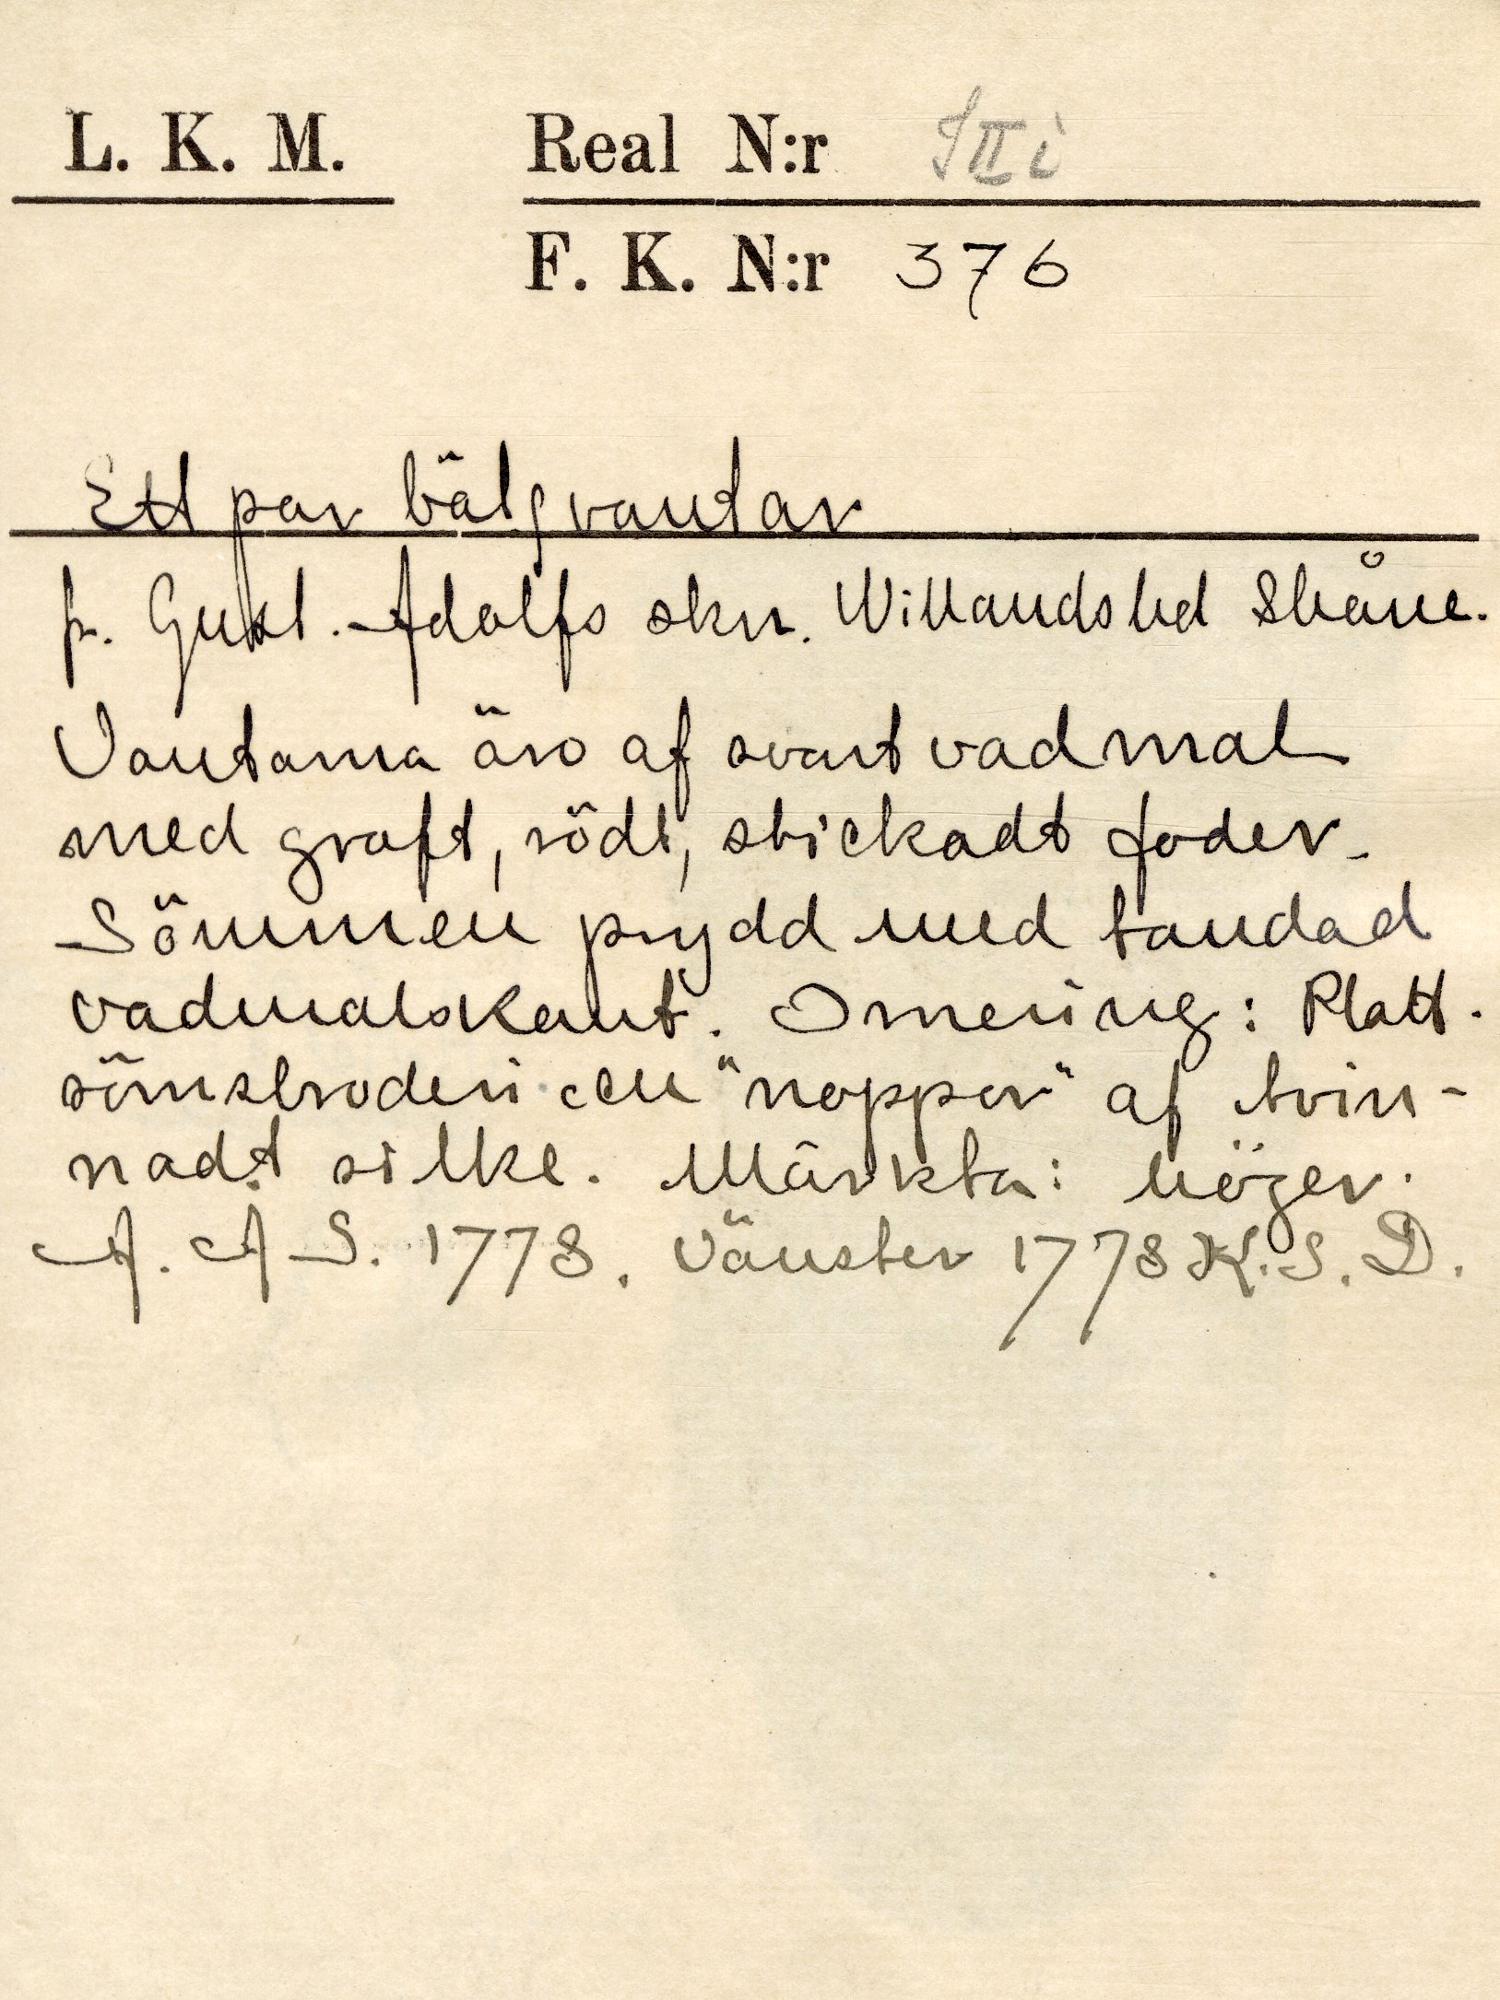 L. K. M. Real N:r S II i
F. K. N:r 376
Ett par bälgvantar
fr. Gust. Adolfs skn. Willands hd Skåne.
Vantarna äro af svart vadmal
med groft, rödt, stickadt foder.
Sömmen prydd med tandad
vadmalskant. Ornering: Platt-
sömsbroderi och "noppor" af tvin-
nadt silke. Märkta: höger.
A. A S. 1778. Vänster 1778 K. S. D.